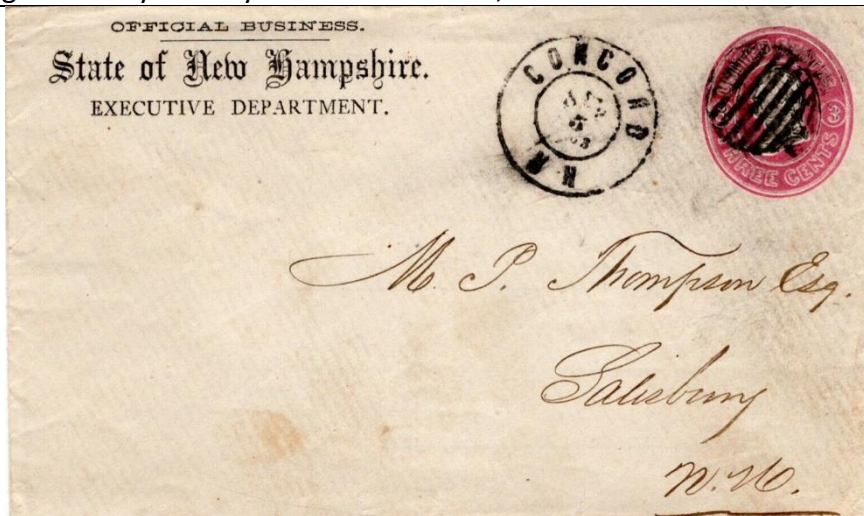 OFFICIAL BUSINESS.
State of New Hampshire.
EXECUTIVE DEPARTMENT.
CONCORD
5
63
N.H.
UNITED STATES
3
THREE CENTS
M. P. Thompson Esq.
Salisbury
N.H.